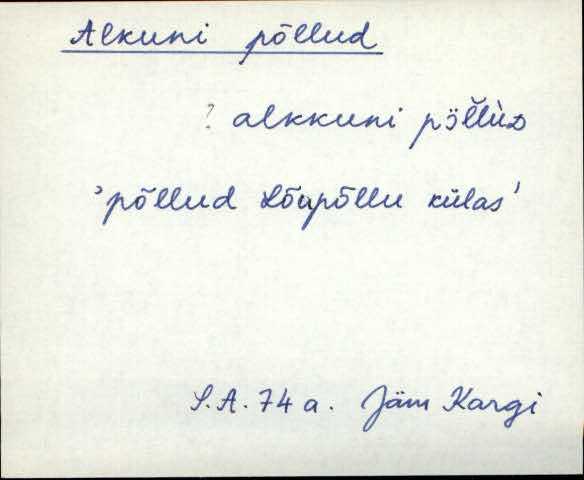 Alkuni põllud
? alkkuni põllùᴅ
'põllud Lõupõllu külas'
S.A. 74 a. Jäm Kargi